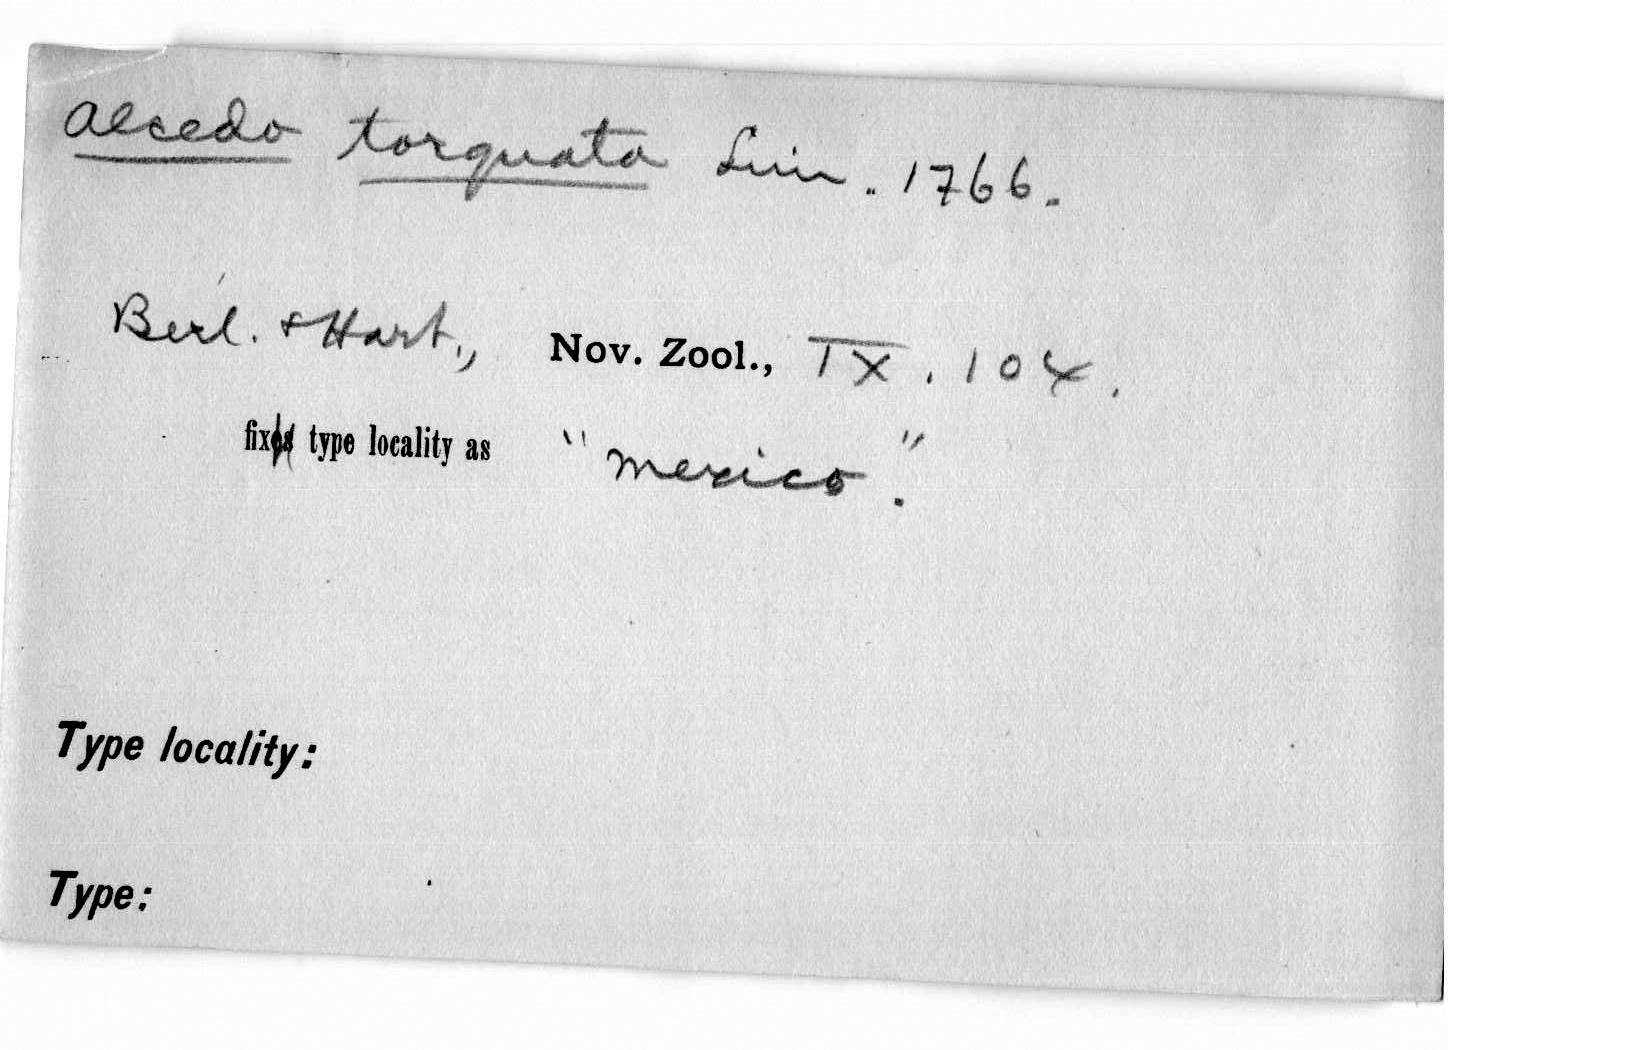 Alcedo torquata Linn. 1766.
Berl. & Hart., Nov. Zool., IX. 104.
fix type locality as "Mexico."
Type locality:
Type: